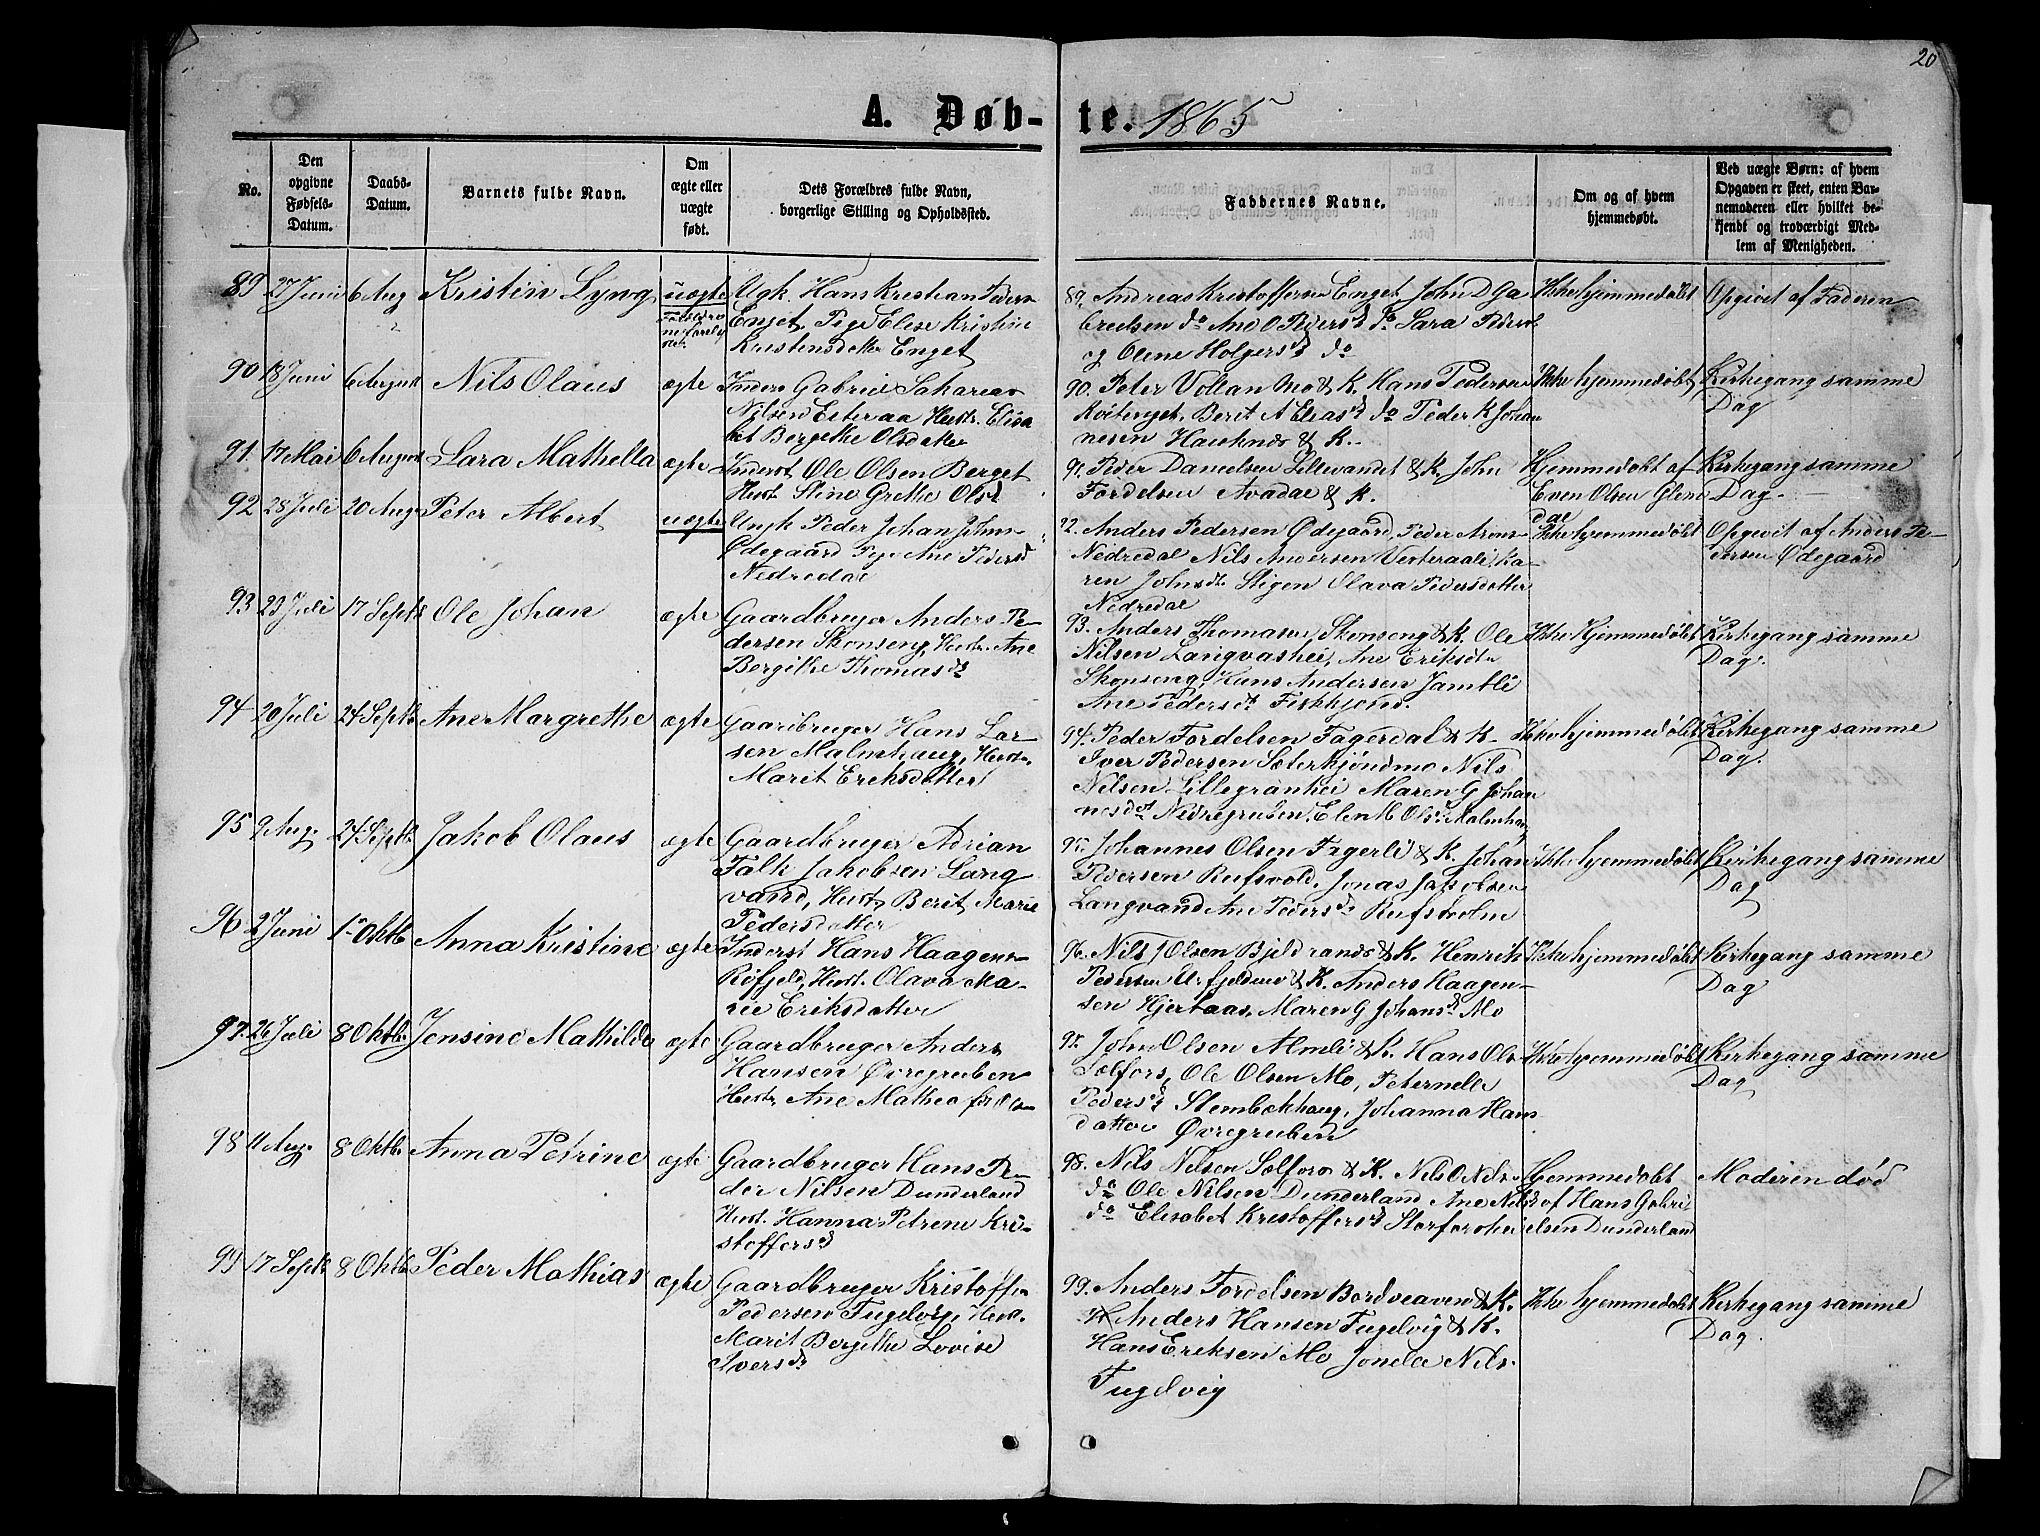 20
A. Døb-te. 1865
No.
Den opgivne Fødsels-Datum.
Daabs-Datum.
Barnets fulde Navn.
Om ægte eller uægte født.
Dets Forældres fulde Navn, borgerlige Stilling og Opholdssted.
Faddernes Navne.
Om og af hvem hjemmedøbt.
Ved uægte Børn: af hvem Opgaven er skeet, enten Barnemoderen eller hvilket bekjendt og troværdigt Medlem af Menigheden.
89 27 Juni 6 Aug Kristin Lyng uægte
Ugk. Hans Kristian Peders
Enget, Pige Elise Kristine
Kristensdatter Enget
89. Andreas Kristoffersen Enget John D Ga
brielsen do And O Peders do Sara Peders
og Oline Holgersd do
Ikke hjemmedøbt
Opgivet af Faderen
90 18 Juni 6 August Nils Olaus ægte
Inders Gabriel Sakarias
Nilsen Esteraa Hustr. Elisa
bet Bergithe Olsdatter
90. Peter Voltan Mo & K. Hans Pedersen
Kvitenget, Berit A Eliasd do Peder K Johan
nesen Hauknes & K.
Ikke hjemmedøbt
Kirkegang samme
Dag
91. 17 Mai 6 August Sara Mathella ægte
Inderst Ole Olsen Berget
Hust. Stine Grethe Olsd
91. Peder Danielsen Lillevandet & K. John
Fordelsen Avadal & K.
Hjemmedøbt af
Even Olsen Glem
dal
Kirkegang samme
Dag.
92 28 Juli 20 Aug Peter Albert uægte
Ungk Peder Johan Johns
Ødegaard Pige Ane Pedersd
Nedredal
92. Anders Pedersen Ødegaard, Peder Arons
Nedredal Nils Andersen Vesteraali, Ka
ren Johnsdt. Stigen Olava Pedersdatter
Nedredal
Ikke hjemmedøbt
Opgivet af Anders Pe-
dersen Ødegaard
93 23 Juli 17 Septb Ole Johan ægte
Gaardbruger Anders Pe-
dersen Skonseng, Hustr. Ane
Bergithe Thomasd
93. Anders Thomasen Skonseng & K. Ole
Nilsen Langvashei, Ane Eriksdtr
Skonseng, Hans Andersen Jamtli
Ane Pedersdt.
Ikke hjemmedøbt
Kirkegang samme
Dag.
94 20 Juli 24 Septb Ane Margrethe ægte
Gaardbruger Hans Lar-
sen Malmhaug, Hustr.
Marit Eriksdatter
94. Peder Fordelsen Fagerdal & K
Iver Pedersen Sæterkjøndmo Nils
Nilsen Lillegranhei Maren G Johan
nesdt Nedregruben. Elen M Olsd Malmhaug
Ikke hjemmedøbt
Kirkegang samme
Dag.
95 9 Aug. 24 Septb. Jakob Olaus ægte
Gaardbruger Adrian
Falk Jakobsen Lang
vand, Hustr. Berit Marie
Pedersdatter
95. Johannes Olsen Fagerli & K. Johan
Pedersen Rufsvold, Jonas Jakobsen
Langvand Ane Pedersd. Rufsholm
Ikke hjemmedøbt
Kirkegang samme
Dag
96 2 Juni 1 Oktb Anna Kristine ægte
Inderst Hans Haagens
Røfjeld, Hust. Olava Ma-
rie Eriksdatter
96. Nils J Olsen Bjeldrands & K. Henrik
Pedersen Urfjeldmo & K. Anders Haagen-
sen Hjertaas, Maren G Johansd Mo
Ikke hjemmedøbt
Kirkegang samme
Dag
97. 26 Juli 8 Oktb. Jensine Mathilde ægte
Gaardbruger Anders
Hansen Øvregruben
Hustr. Ane Mathea
97. John Olsen Almli & K. Hans Ols
Sælfors, Ole Olsen Mo, Peternelle
Pedersd Stenbekhaug, Johanna Hans
datter Øvregruben
Ikke hjemmedøbt
Kirkegang samme
Dag
98 11 Aug. 8 Oktb. Anna Petrine ægte
Gaardbruger Hans Pe-
der Nilsen Dunderland
Hust. Hanna Petrene Kri-
stoffersd
98. Nils Nilsen Sælfors & K. Nils O Nils
do Ole Nilsen Dunderland Ane Nilsd
do Elisabet Kristoffersd Storforshei
Hjemmedøbt
af Hans Gabri-
elsen Dunderland
Moderen død
99 17 Septb 8 Oktb Peder Mathias ægte
Gaardbruger Kristoffer
Pedersen Fugelvig, Hust.
Marit Bergithe Lovise
Iversdr
99. Anders Fordelsen Bordveaven & K.
Anders Hansen Fugelvig & K.
Hans Eriksen Mo Jonele Nils
Fugelvig
Ikke hjemmedøbt
Kirkegang samme
Dag.